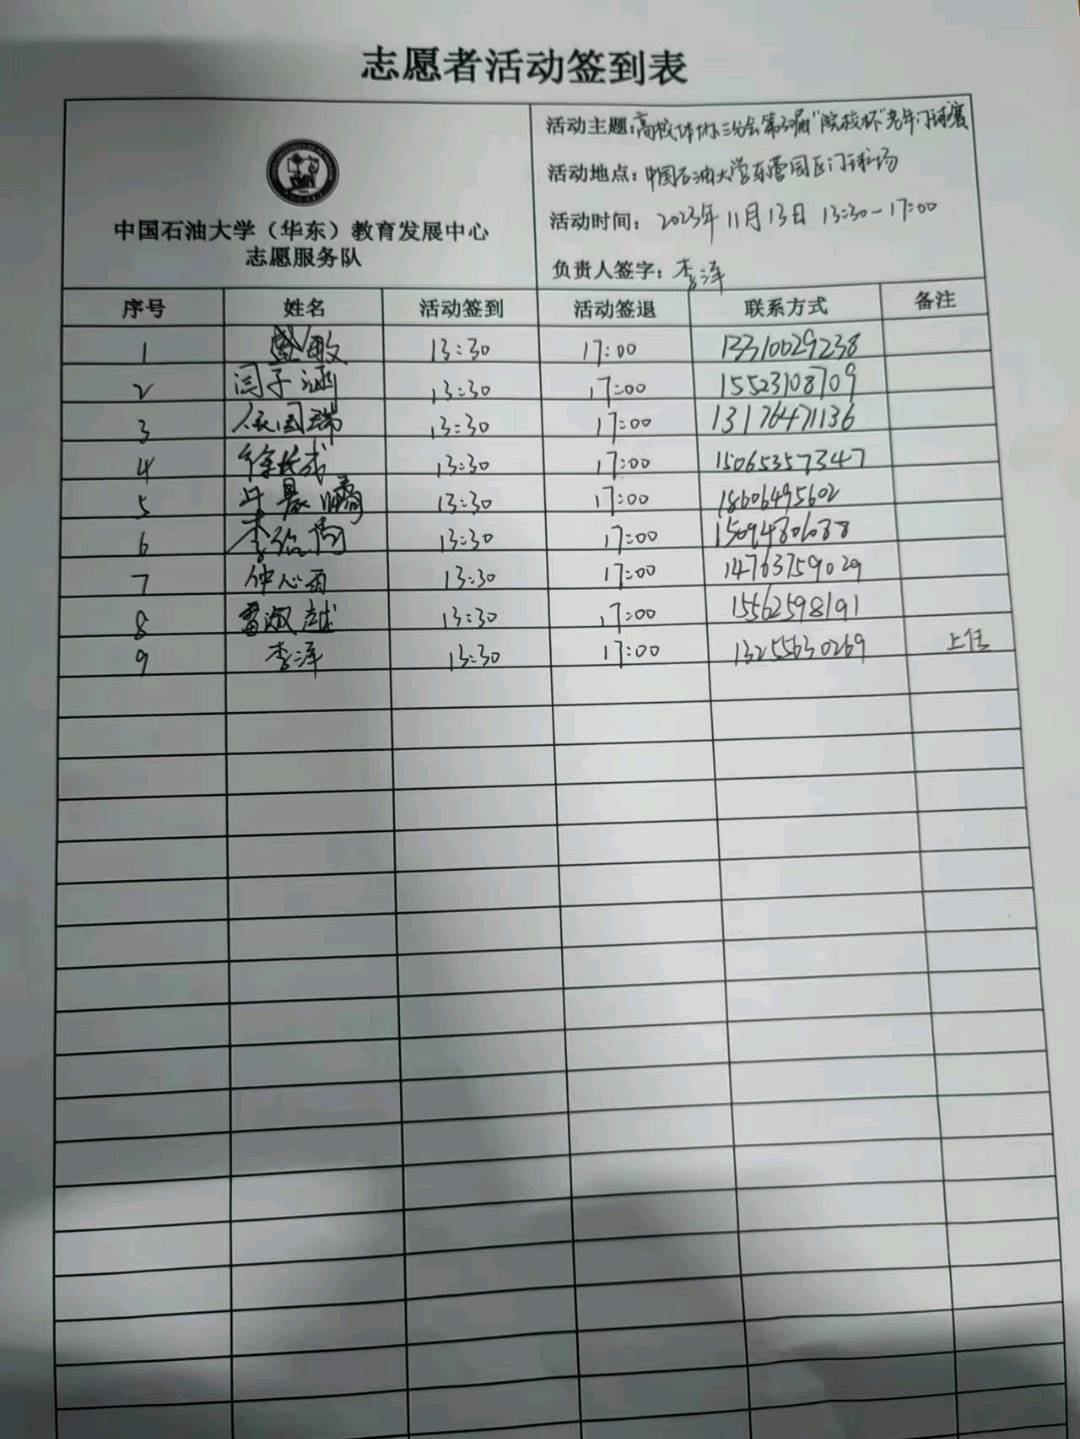 志愿者活动签到表
中国石油大学（华东）教育发展中心
志愿服务队
活动主题：高校体协三分会第30届“院校杯”老年门球赛
活动地点：中国石油大学东营园区门球场
活动时间： 2023年11月13日 13:30-17:00
负责人签字：李泽
序号 姓名 活动签到 活动签退 联系方式 备注
1 盛敏 13:30 17:00 13310029238
2 闫子涵 13:30 17:00 15523108709
3 13:30 17:00 13176471136
4 徐长成 13:30 17:00 15065357347
5 13:30 17:00 18606495602
6 13:30 17:00
7 仲心雨 13:30 17:00 14763759029
8 13:30 17:00 15562598191
9 李泽 13:30 17:00 13255630269